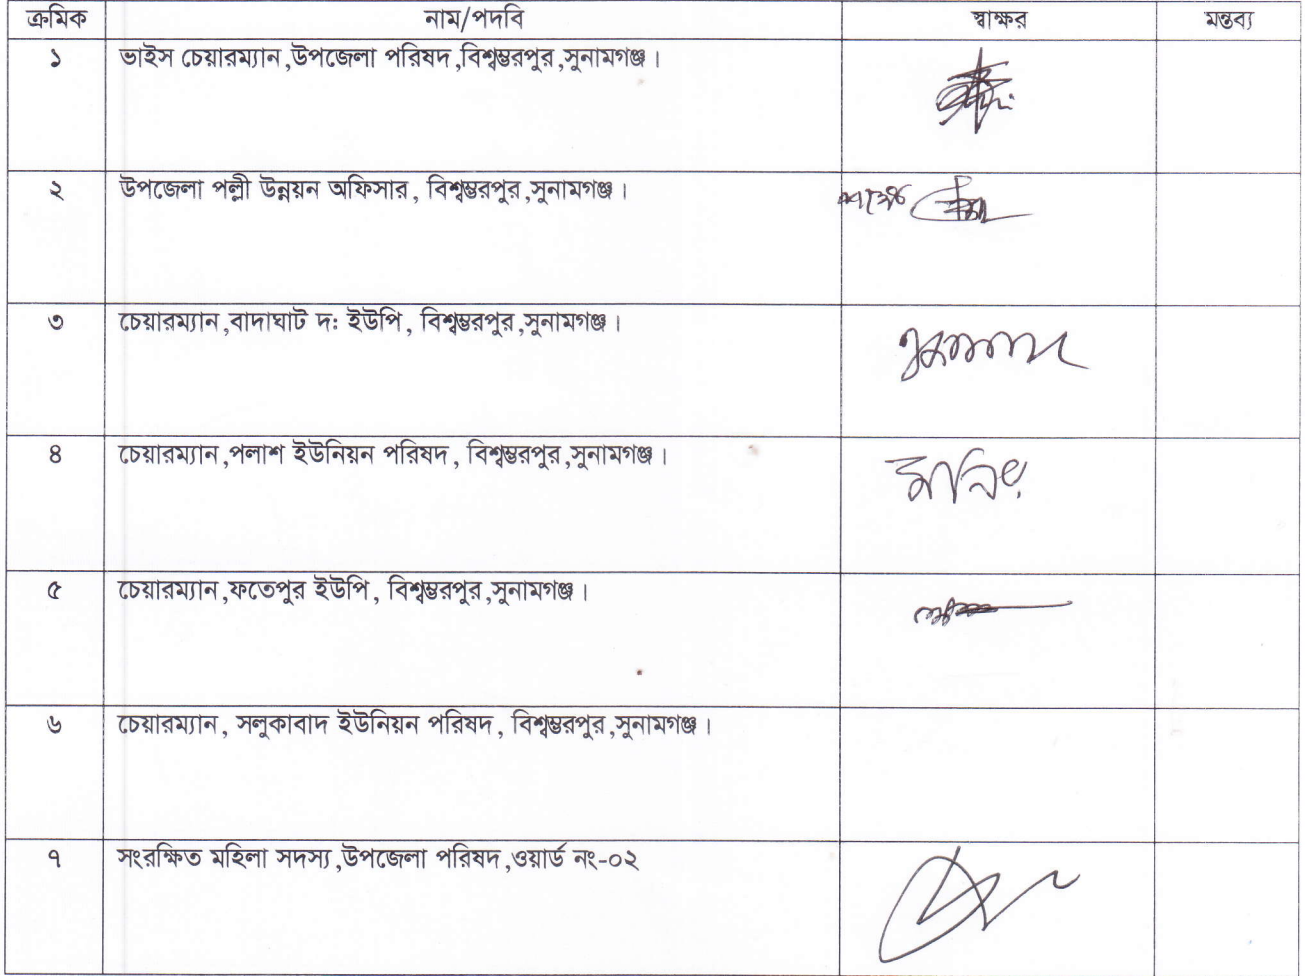 ক্রমিক নাম/পদবি স্বাক্ষর মন্তব্য
১ ভাইস চেয়ারম্যান,উপজেলা পরিষদ,বিশ্বম্ভরপুর,সুনামগঞ্জ।
২ উপজেলা পল্লী উন্নয়ন অফিসার, বিশ্বম্ভরপুর,সুনামগঞ্জ।
৩ চেয়ারম্যান,বাদাঘাট দ: ইউপি, বিশ্বম্ভরপুর,সুনামগঞ্জ।
৪ চেয়ারম্যান,পলাশ ইউনিয়ন পরিষদ, বিশ্বম্ভরপুর,সুনামগঞ্জ।
৫ চেয়ারম্যান,ফতেপুর ইউপি, বিশ্বম্ভরপুর,সুনামগঞ্জ।
৬ চেয়ারম্যান, সলুকাবাদ ইউনিয়ন পরিষদ, বিশ্বম্ভরপুর,সুনামগঞ্জ।
৭ সংরক্ষিত মহিলা সদস্য,উপজেলা পরিষদ,ওয়ার্ড নং-০২